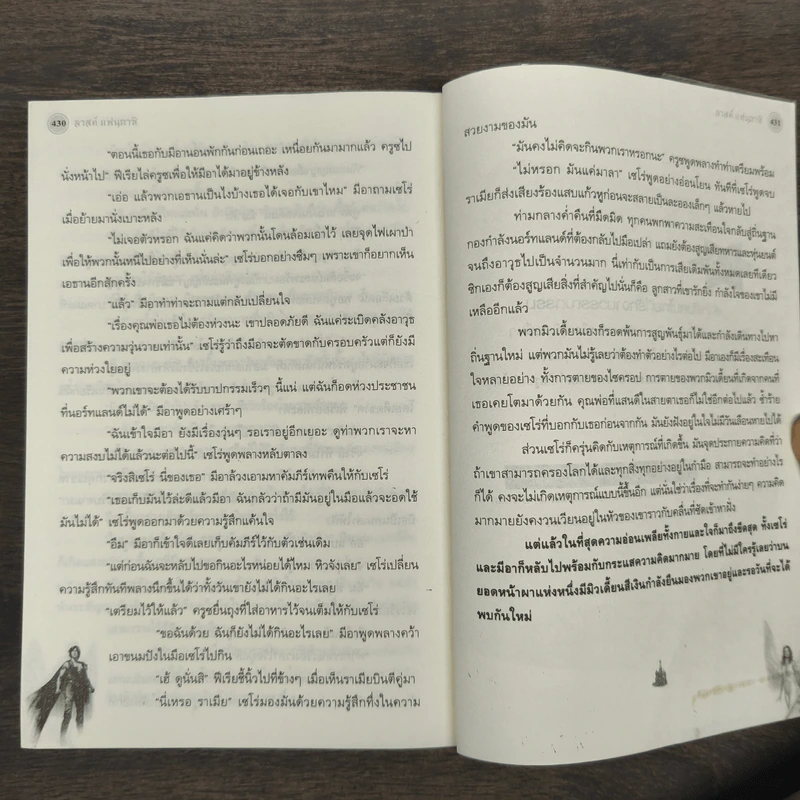 430 ลาสท์ แฟนตาซี
"ตอนนี้เธอกับมีอานอนพักกันก่อนเถอะ เหนื่อยกันมามากแล้ว ครูซไป
นั่งหน้าไป" ฟีเรียไล่ครูซเพื่อให้มีอาได้มาอยู่ข้างหลัง
"เอ่อ แล้วพวกเอธานเป็นไงบ้างเธอได้เจอกับเขาไหม" มีอาถามเซโร่
เมื่อย้ายมานั่งเบาะหลัง
"ไม่เจอตัวหรอก ฉันแค่คิดว่าพวกนั้นโดนล้อมเอาไว้ เลยจุดไฟเผาป่า
เพื่อให้พวกนั้นหนีไปอย่างที่เห็นนั่นล่ะ" เซโร่บอกอย่างซึมๆ เพราะเขาก็อยากเห็น
เอธานอีกสักครั้ง
"แล้ว" มีอาทำท่าจะถามแต่กลับเปลี่ยนใจ
"เรื่องคุณพ่อเธอไม่ต้องห่วงนะ เขาปลอดภัยดี ฉันแค่ระเบิดคลังอาวุธ
เพื่อสร้างความวุ่นวายเท่านั้น" เซโร่รู้ว่าถึงมีอาจะตัดขาดกับครอบครัวแต่ก็ยังมี
ความห่วงใยอยู่
"พวกเขาจะต้องได้รับบาปกรรมเร็วๆ นี้แน่ แต่ฉันก็อดห่วงประชาชน
ที่นอร์ทแลนด์ไม่ได้" มีอาพูดอย่างเศร้าๆ
"ฉันเข้าใจมีอา ยังมีเรื่องวุ่นๆ รอเราอยู่อีกเยอะ ดูท่าพวกเราจะหา
ความสงบไม่ได้แล้วนะต่อไปนี้" เซโร่พูดพลางหลับตาลง
"จริงสิเซโร่ นี่ของเธอ" มีอาล้วงเอามหาคัมภีร์เทพคืนให้กับเซโร่
"เธอเก็บมันไว้ล่ะดีแล้วมีอา ฉันกลัวว่าถ้ามีมันอยู่ในมือแล้วจะอดใช้
มันไม่ได้" เซโร่พูดออกมาด้วยความรู้สึกแค้นใจ
"อืม" มีอาก็เข้าใจดีเลยเก็บคัมภีร์ไว้กับตัวเช่นเดิม
"แต่ก่อนฉันจะหลับไปขอกินอะไรหน่อยได้ไหม หิวจังเลย" เซโร่เปลี่ยน
ความรู้สึกทันทีพลางนึกขึ้นได้ว่าทั้งวันเขายังไม่ได้กินอะไรเลย
"เตรียมไว้ให้แล้ว" ครูซยื่นถุงที่ใส่อาหารไว้จนเต็มให้กับเซโร่
"ขอฉันด้วย ฉันก็ยังไม่ได้กินอะไรเลย" มีอาพูดพลางคว้า
เอาขนมปังในมือเซโร่ไปกิน
"เฮ้ ดูนั่นสิ" ฟีเรียชี้นิ้วไปที่ข้างๆ เมื่อเห็นราเมียบินตีคู่มา
"นี่เหรอ ราเมีย" เซโร่มองมันด้วยความรู้สึกทึ่งในความ
ลาสท์ แฟนตาซี 431
สวยงามของมัน
"มันคงไม่คิดจะกินพวกเราหรอกนะ" ครูซพูดพลางทำท่าเตรียมพร้อม
"ไม่หรอก มันแค่มาลา" เซโร่พูดอย่างอ่อนโยน ทันทีที่เซโร่พูดจบ
ราเมียก็ส่งเสียงร้องแสบแก้วหูก่อนจะสลายเป็นละอองเล็กๆ แล้วหายไป
ท่ามกลางค่ำคืนที่มืดมิด ทุกคนพกพาความสะเทือนใจกลับสู่ถิ่นฐาน
กองกำลังนอร์ทแลนด์ที่ต้องกลับไปมือเปล่า แถมยังต้องสูญเสียทหารและหุ่นยนต์
จนถึงอาวุธไปเป็นจำนวนมาก นี่เท่ากับเป็นการเสียเดิมพันทั้งหมดเลยทีเดียว
ซิกเองก็ต้องสูญเสียสิ่งที่สำคัญไปนั่นก็คือ ลูกสาวที่เขารักยิ่ง กำลังใจของเขาไม่มี
เหลืออีกแล้ว
พวกมิวเดี้ยนเองก็รอดพ้นการสูญพันธุ์มาได้และกำลังเดินทางไปหา
ถิ่นฐานใหม่ แต่พวกมันไม่รู้เลยว่าต้องทำตัวอย่างไรต่อไป มีอาเองก็มีเรื่องสะเทือน
ใจหลายอย่าง ทั้งการตายของไซครอป การตายของพวกมิวเดี้ยนที่เกิดจากคนที่
เธอเคยโตมาด้วยกัน คุณพ่อที่แสนดีในสายตาเธอก็ไม่ใช่อีกต่อไปแล้ว ซ้ำร้าย
คำพูดของเซโร่ที่บอกกับเธอก่อนจากกัน มันยังฝังอยู่ในใจไม่มีวันเลือนหายไปได้
ส่วนเซโร่ก็ครุ่นคิดกับเหตุการณ์ที่เกิดขึ้น มันจุดประกายความคิดที่ว่า
ถ้าเขาสามารถครองโลกได้และทุกสิ่งทุกอย่างอยู่ในกำมือ สามารถจะทำอย่างไร
ก็ได้ คงจะไม่เกิดเหตุการณ์แบบนี้ขึ้นอีก แต่นั่นใช่ว่าเรื่องที่จะทำกันง่ายๆ ความคิด
มากมายยังคงวนเวียนอยู่ในหัวของเขาราวกับคลื่นที่ซัดเข้าหาฝั่ง
แต่แล้วในที่สุดความอ่อนเพลียทั้งกายและใจก็มาถึงขีดสุด ทั้งเซโร่
และมีอาก็หลับไปพร้อมกับกระแสความคิดมากมาย โดยที่ไม่มีใครรู้เลยว่าบน
ยอดหน้าผาแห่งหนึ่งมีมิวเดี้ยนสีเงินกำลังยืนมองพวกเขาอยู่และรอวันที่จะได้
พบกันใหม่